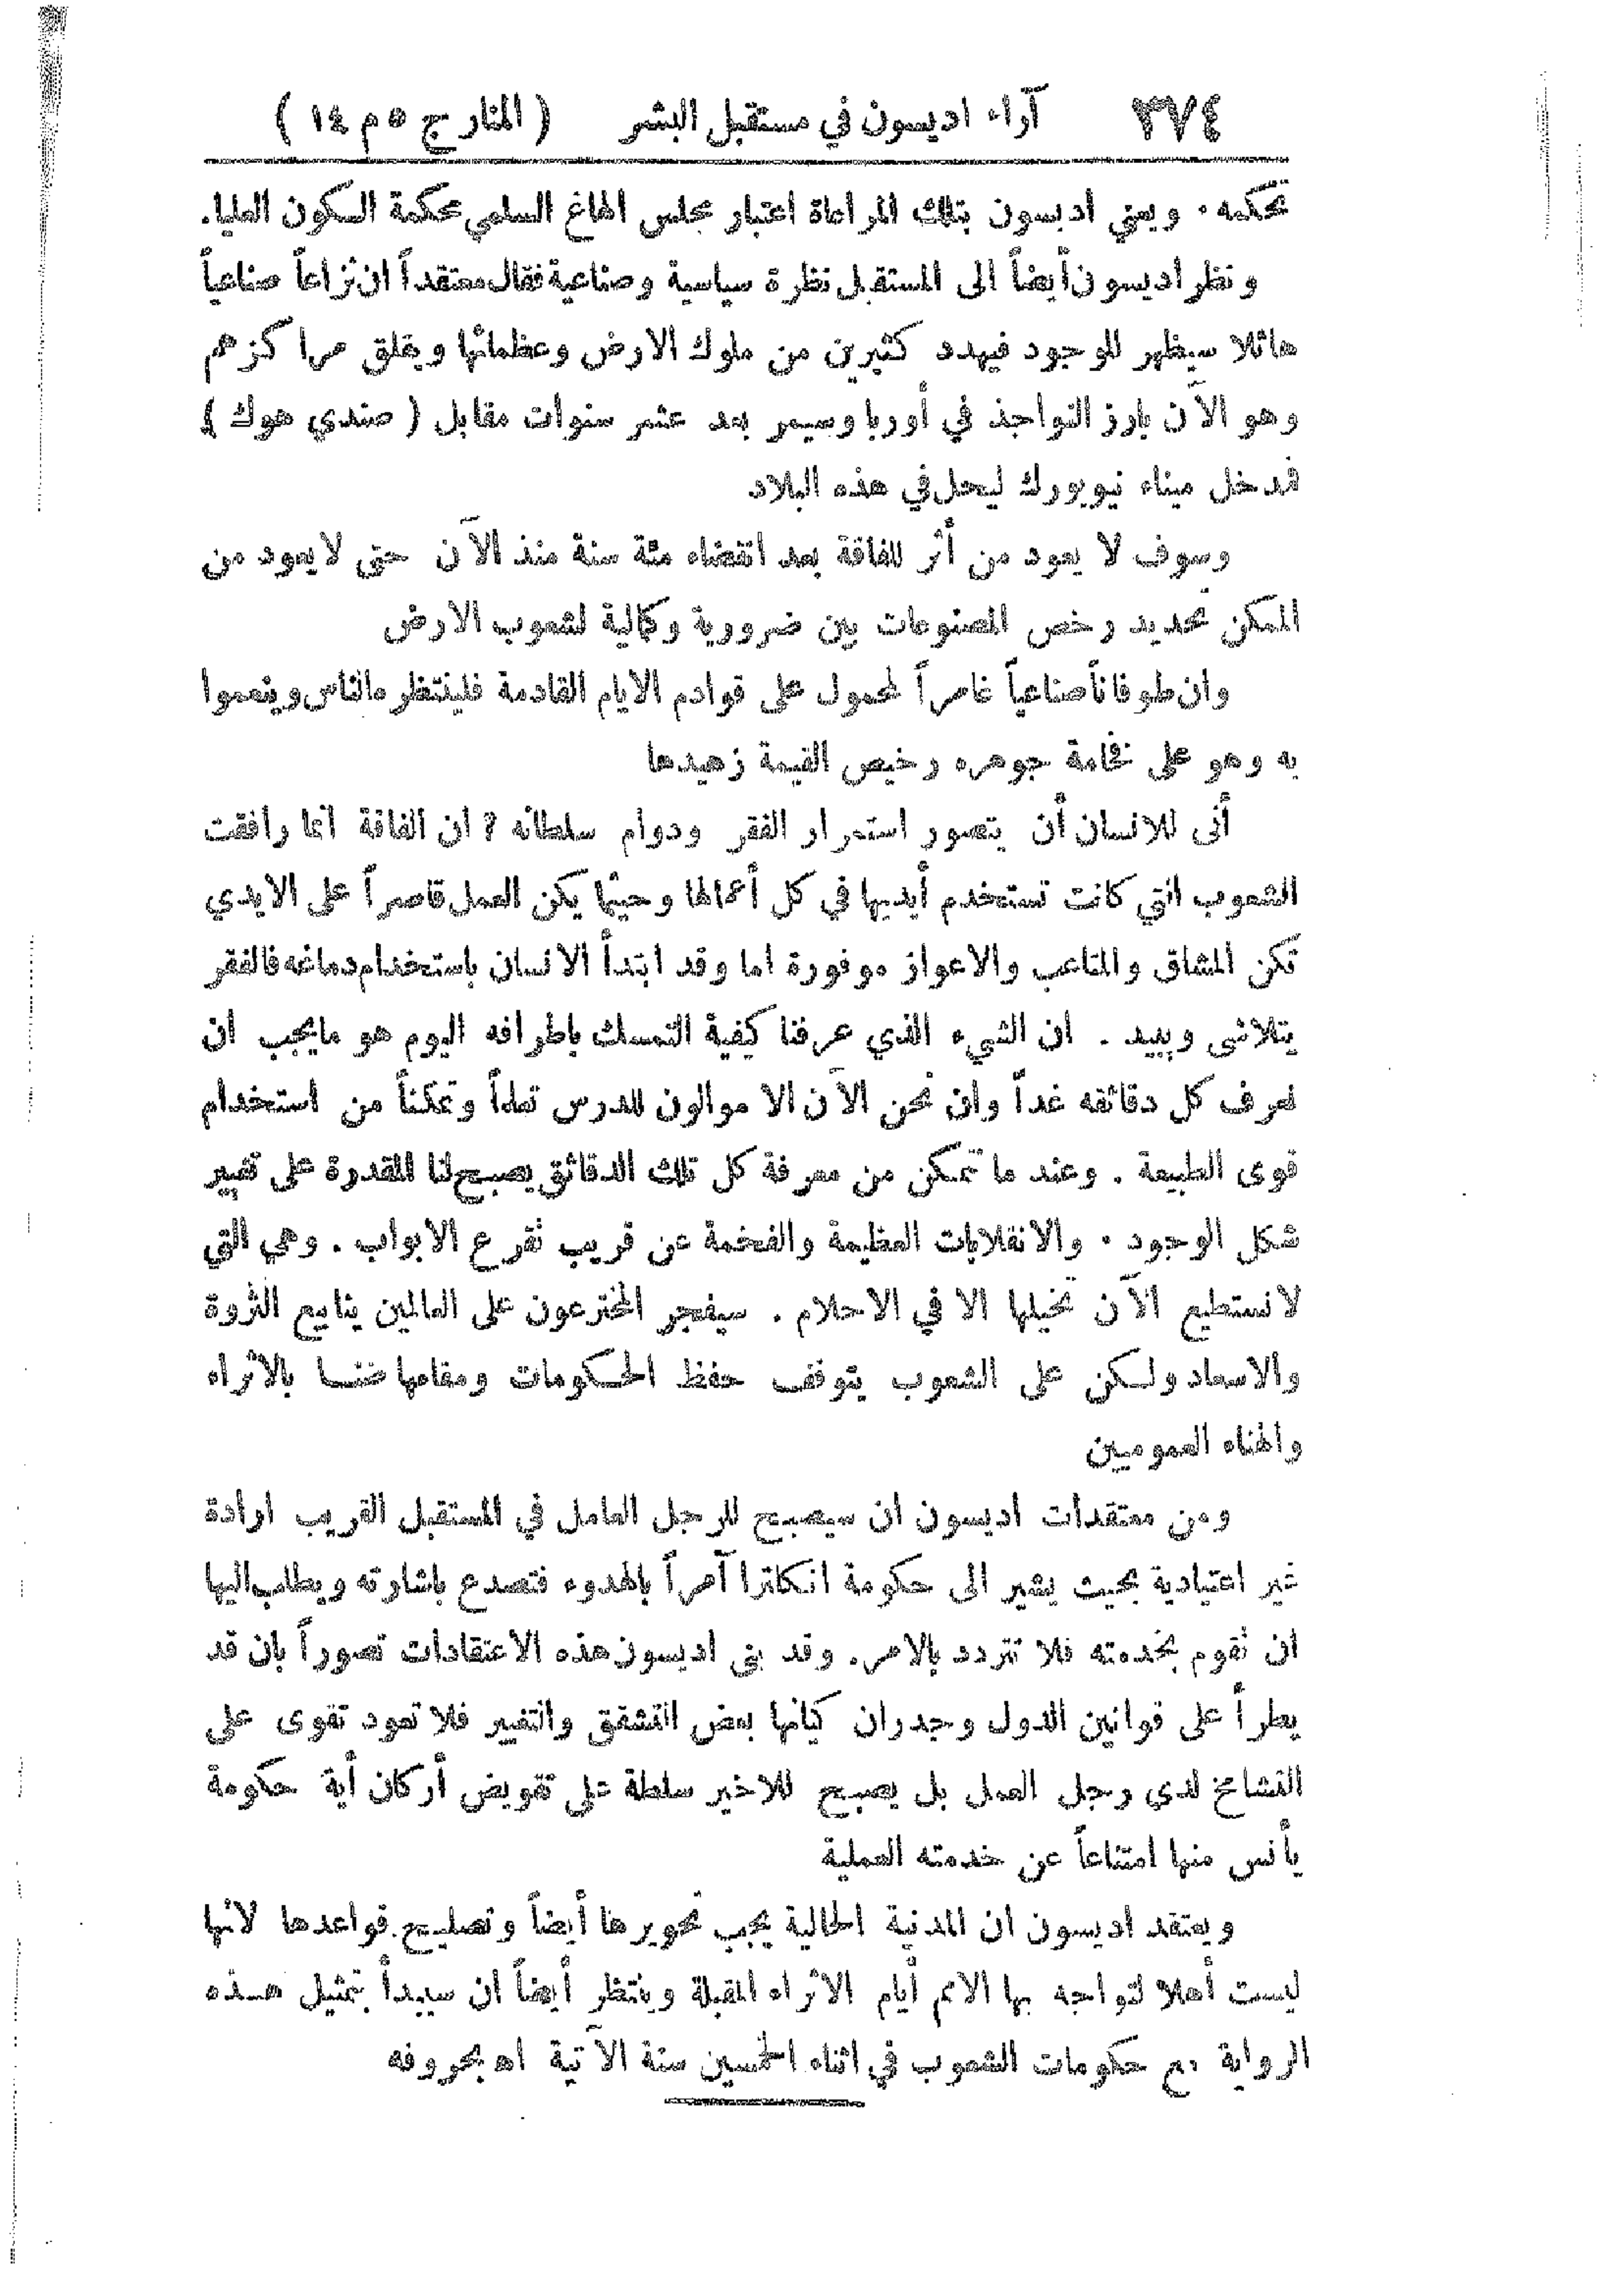 ٣٧٤ آراء اديسون في مستقبل البشر ( المنار ج ٥ م ١٤ )
تحكمه ٠ ويعني اديسون بتلك المراعاة اعتبار مجلس الهاغ السلمي محكمة السكون العليا.
ونظر اديسون أيضاً الى المستقبل نظرة سياسية وصناعية فقال معتقداً ان نزاعاً صناعياً
هائلا سيظهر للوجود فيهدد كثيرين من ملوك الارض وعظمائها ويقلق مراكزهم
وهو الآن بارز النواجذ في أوربا وسيمر بعد عشر سنوات مقابل ( صندي هوك )
فمدخل ميناء نيويورك ليحل في هذه البلاد
وسوف لا يعود من أثر للفاقة بعد انقضاء مئة سنة منذ الآن حتى لا يعود من
الممكن تحديد رخص المصنوعات بين ضرورية وكمالية لشعوب الارض
وان طوفاناً صناعياً غامراً لمحمول على قوادم الايام القادمة فلينتظره الناس وينعموا
به وهو على فخامة جوهره رخيص القيمة زهيدها
أنى للانسان أن يتصور استمرار الفقر ودوام سلطانه ؟ ان الفاقة انما رافقت
الشعوب التي كانت تستخدم أيديها في كل أعمالها وحيثما يكن العمل قاصراً على الايدي
تكن المشاق والمتاعب والاعواز موفورة اما وقد ابتدأ الانسان باستخدام دماغه فالفقر
يتلاشى ويبيد . ان الشيء الذي عرفنا كيفية التمسك باطرافه اليوم هو ما يجب ان
نعرف كل دقائقه غداً وان نحن الآن الا موالون للدرس تعلماً وتمكناً من استخدام
قوى الطبيعة . وعند ما نتمكن من معرفة كل تلك الدقائق يصبح لنا المقدرة على تغيير
شكل الوجود ٠ والانقلابات العظيمة والفخمة عن قريب تقرع الابواب . وهي التي
لا نستطيع الآن تخيلها الا في الاحلام . سيفجر المخترعون على العالمين ينابيع الثروة
والاسعاد ولكن على الشعوب يتوقف حفظ الحكومات ومقامها بالاثراء
والهناء العموميين
ومن معتقدات اديسون ان سيصبح للرجل العامل في المستقبل القريب ارادة
غير اعتيادية بحيث يشير الى حكومة انكلترا آمراً بالهدوء فتصدع باشارته ويطلب اليها
ان تقوم بخدمته فلا تتردد بالامر. وقد بنى اديسون هذه الاعتقادات تصوراً بان قد
يطرأ على قوانين الدول وجدران كيانها بعض التشقق والتغيير فلا تعود تقوى على
التشامخ لدى رجل العمل بل يصبح للاخير سلطة على تقويض أركان أية حكومة
يأنس منها امتناعاً عن خدمته العملية
ويعتقد اديسون ان المدنية الحالية يجب تحويرها أيضاً وتصليح قواعدها لانها
ليست أهلا لتواجه بها الامم أيام الاثراء المقبلة وينتظر أيضاً ان سيبدأ بتمثيل هذه
الرواية مع حكومات الشعوب في اثناء الخمسين سنة الآتية اه بحروفه